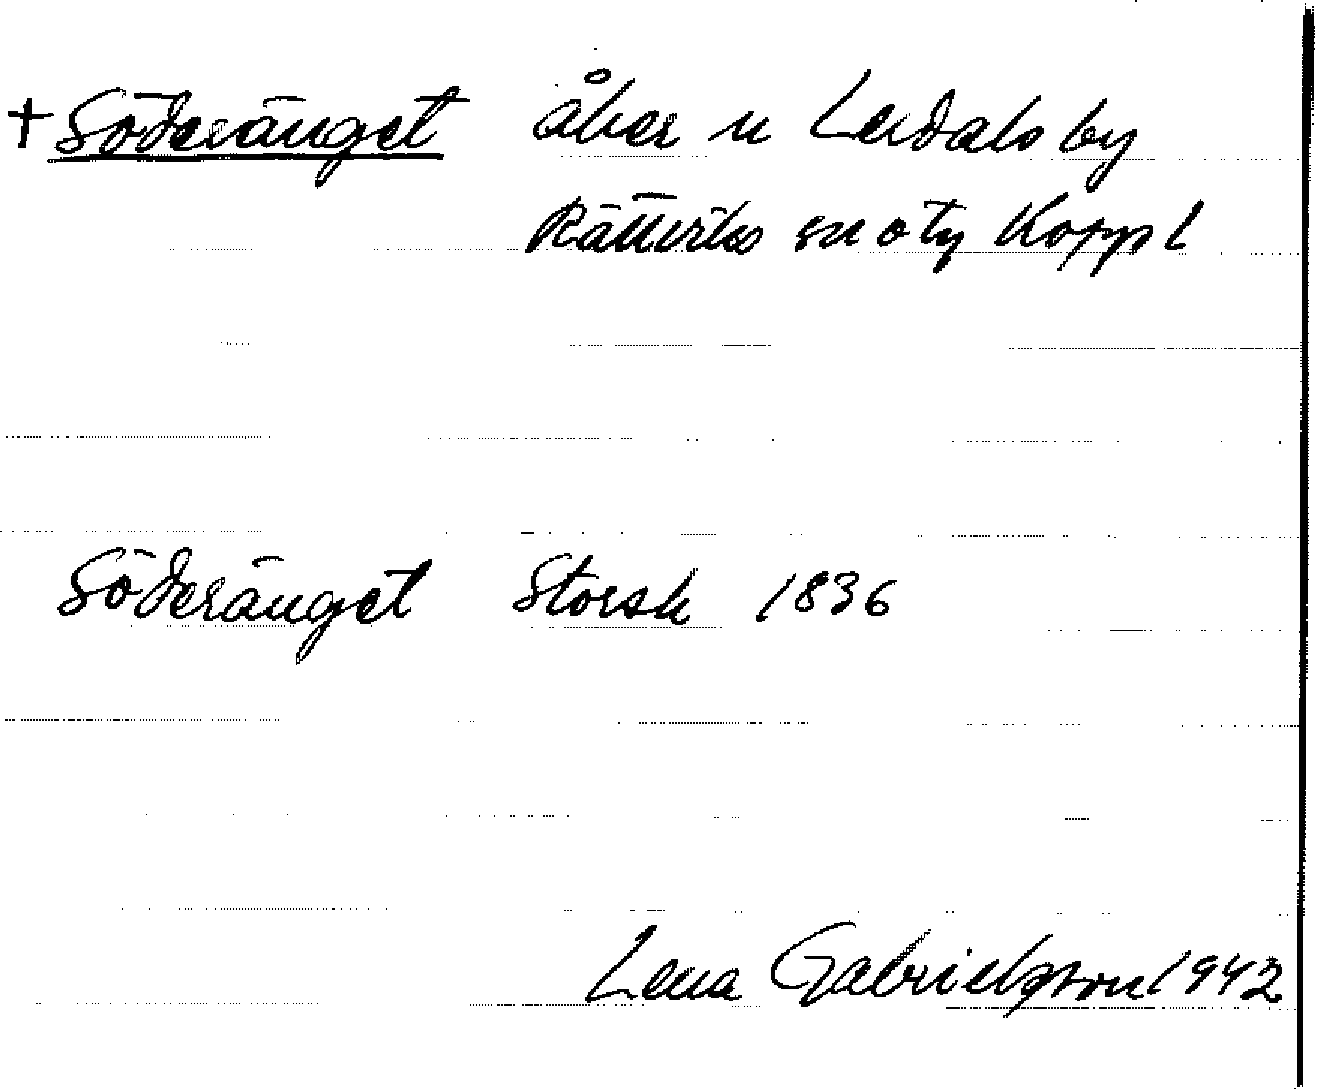 + Söderänget åker u Lerdals by
Rättviks sn o tg Koppl
Söderänget Storsk 1836
Lena Gabrielsson 1942